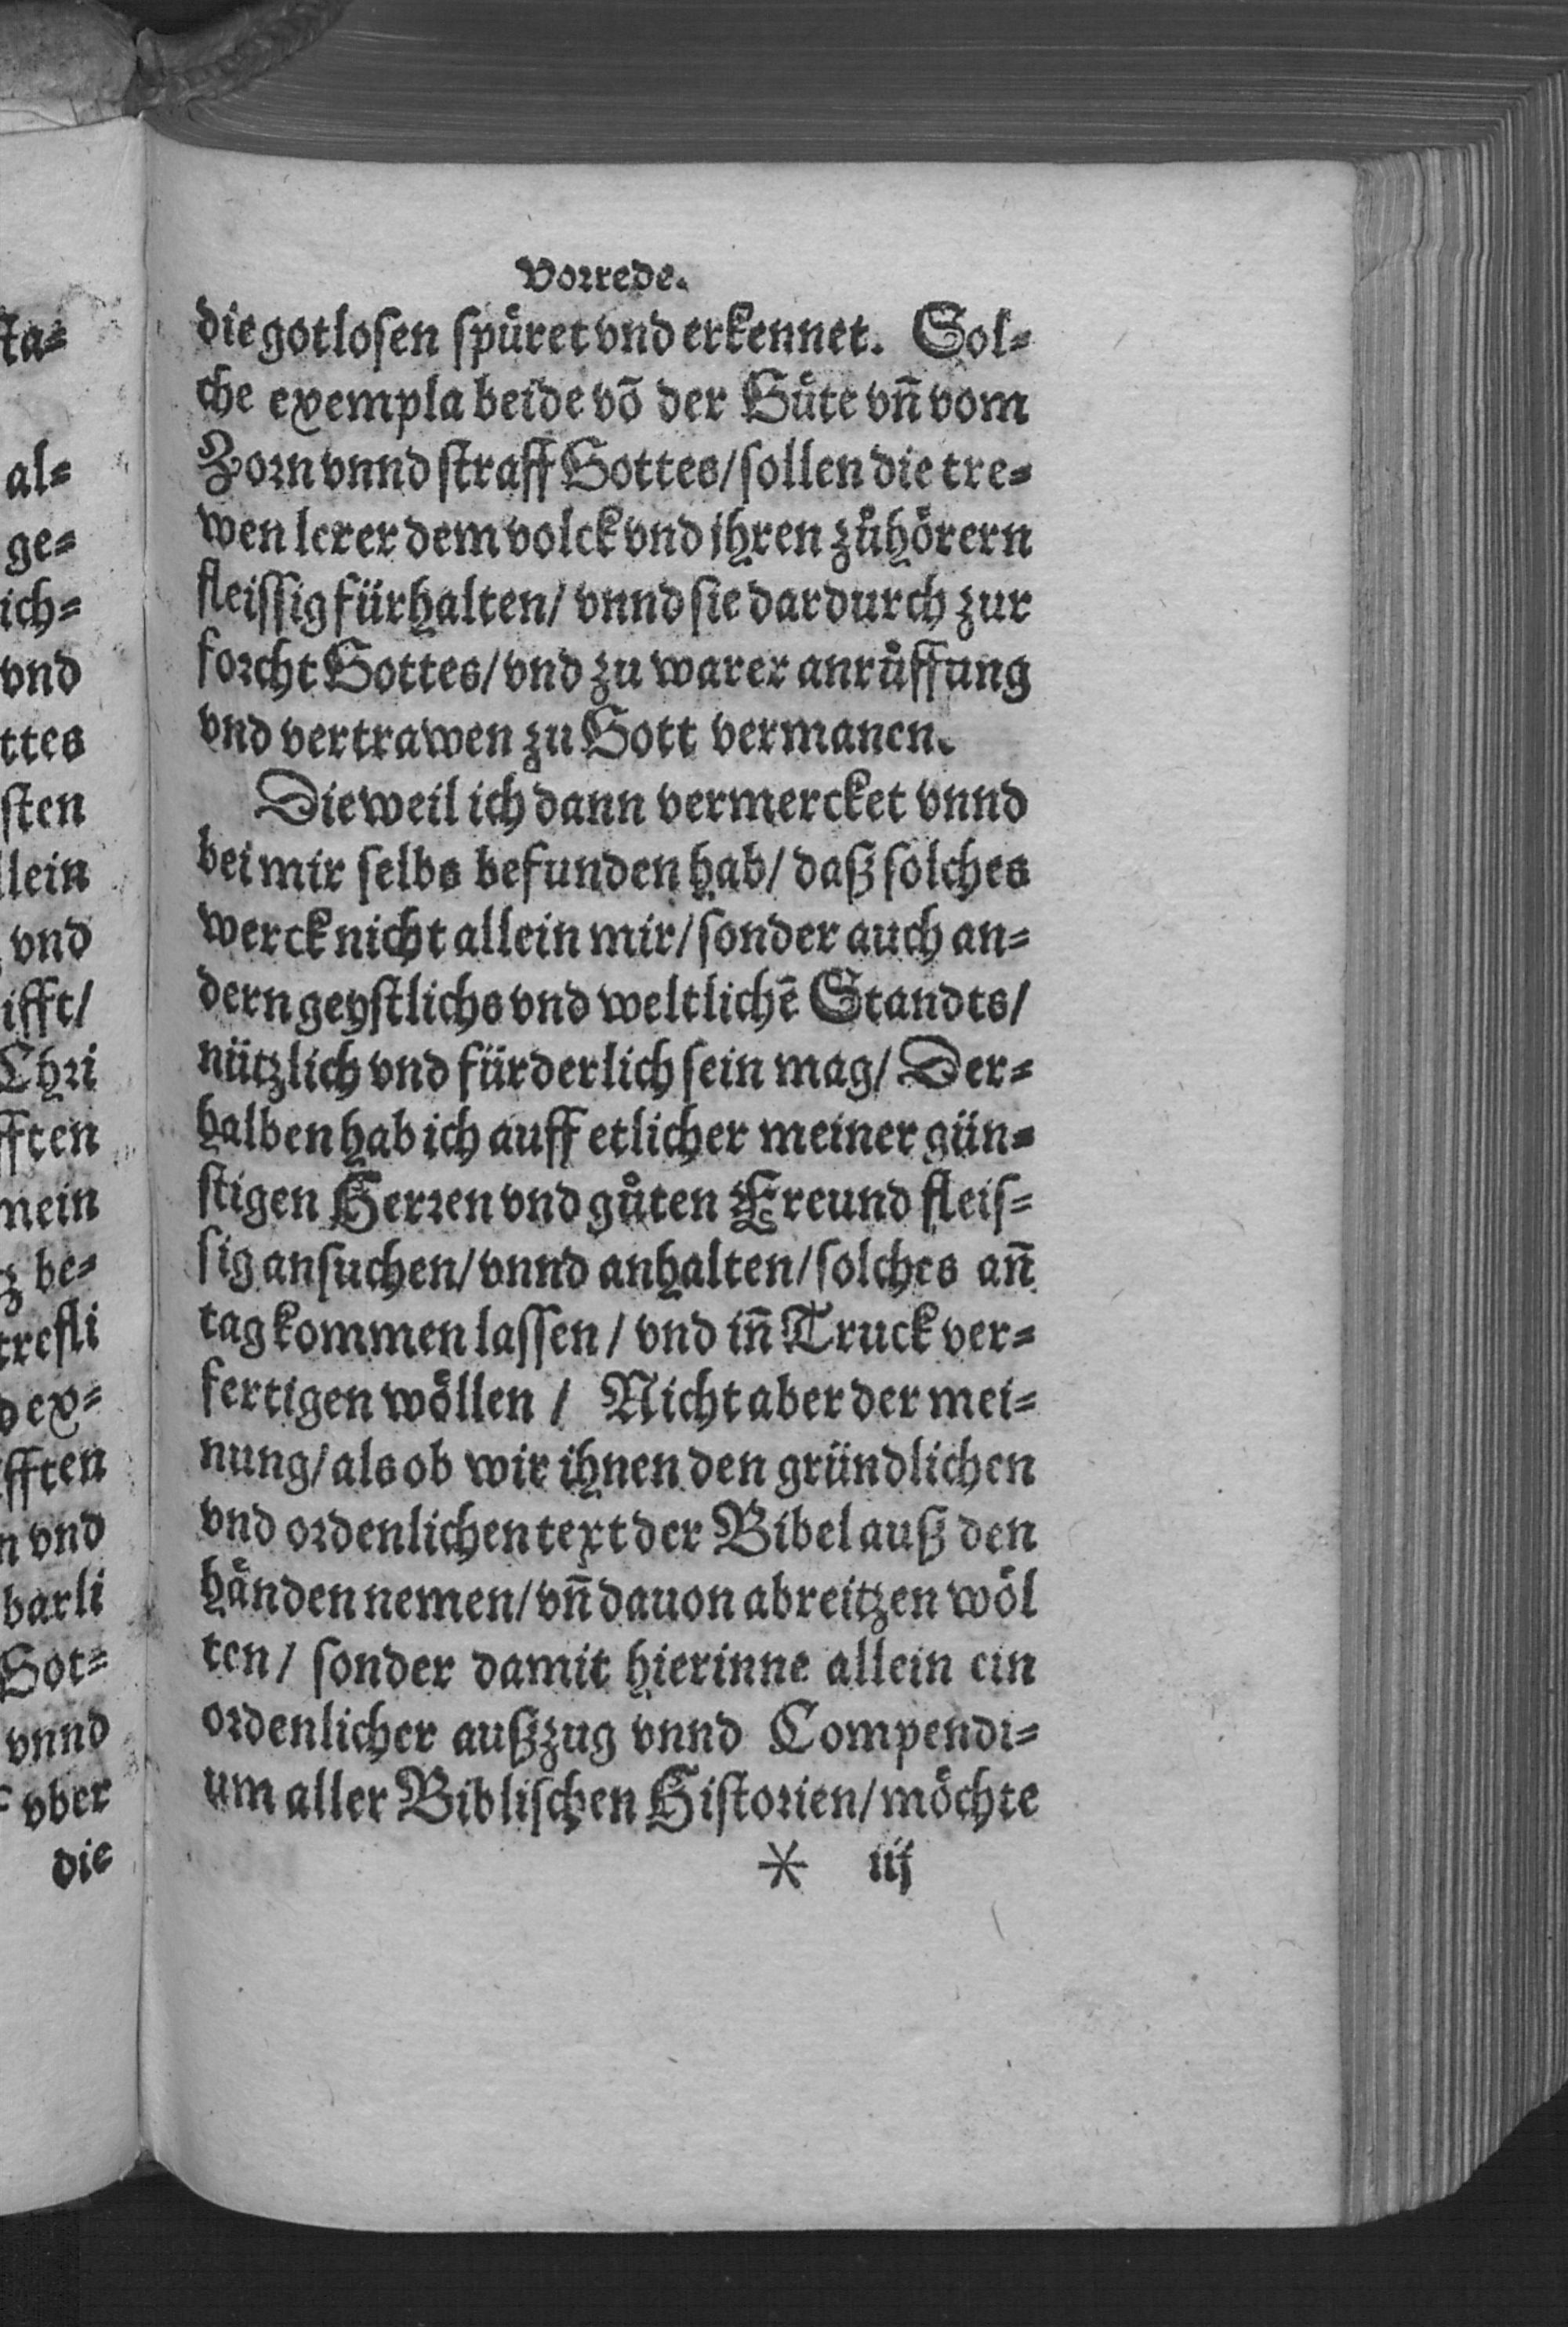 Vorrede.
die gotlosen spuͤret vnd erkennet. Sol⸗
che exempla beide vō der Guͤte vn̄ vom
Zorn vnnd straff Gottes/ sollen die tre⸗
wen lerer dem volck vnd jhren zuͦhoͤrern
fleissig fürhalten/ vnnd sie dardurch zur
forcht Gottes/ vnd zu warer anruͤffung
vnd vertrawen zu Gott vermanen.
Dieweil ich dann vermercket vnnd
bei mir selbs befunden hab/ daß solches
werck nicht allein mir/ sonder auch an⸗
dern geystlichs vnd weltlichē Standts/
nützlich vnd fürderlich sein mag/ Der⸗
halben hab ich auff etlicher meiner gün⸗
stigen Herren vnd guͦten Freund fleis⸗
sig ansuchen/ vnnd anhalten/ solches an̄
tag kommen lassen / vnd in̄ Truck ver⸗
fertigen woͤllen / Nicht aber der mei⸗
nung/ als ob wir ihnen den gründlichen
vnd ordenlichen text der Bibel auß den
haͤnden nemen/ vn̄ dauon abreitzen woͤl
ten/ sonder damit hierinne allein ein
ordenlicher außzug vnnd Compendi⸗
um aller Biblischen Historien/ moͤchte
* iij
ta⸗
al⸗
ge⸗
ich⸗
vnd
ttes
sten
lein
vnd
ifft/
Chri
fften
mein
be⸗
trefli
d ex⸗
fften
n vnd
barli
Got⸗
vnnd
vber
die